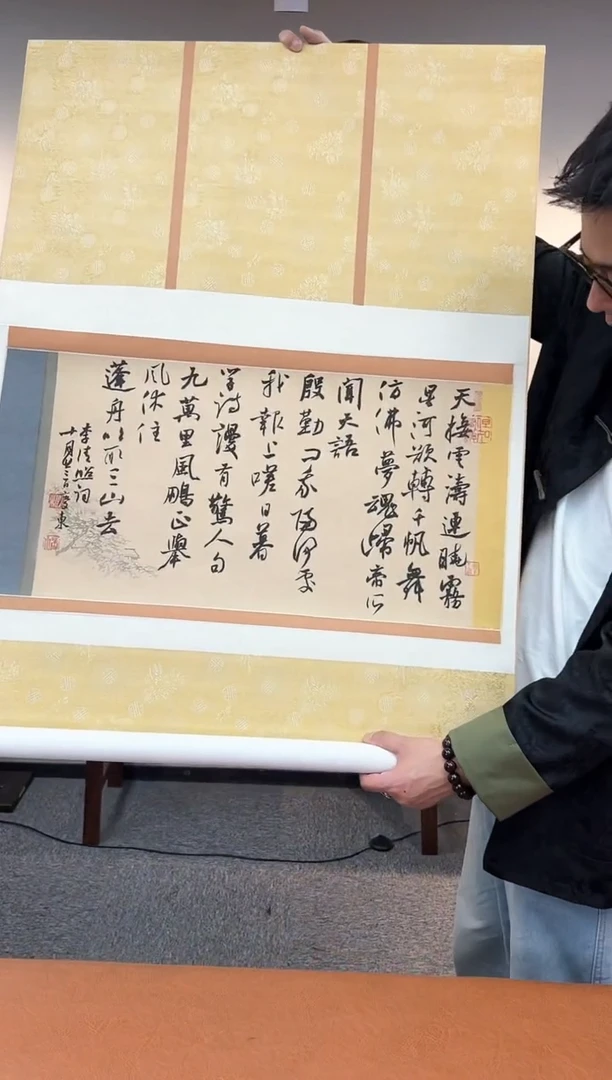 天接雲濤連曉霧
星河欲轉千帆舞
仿佛夢魂歸帝所
聞天語
殷勤问我归何处
我報长嗟日暮
学诗謾有驚人句
九萬里風鵬正舉
风休住
蓬舟吹取三山去
李清照词
十月廿三日东